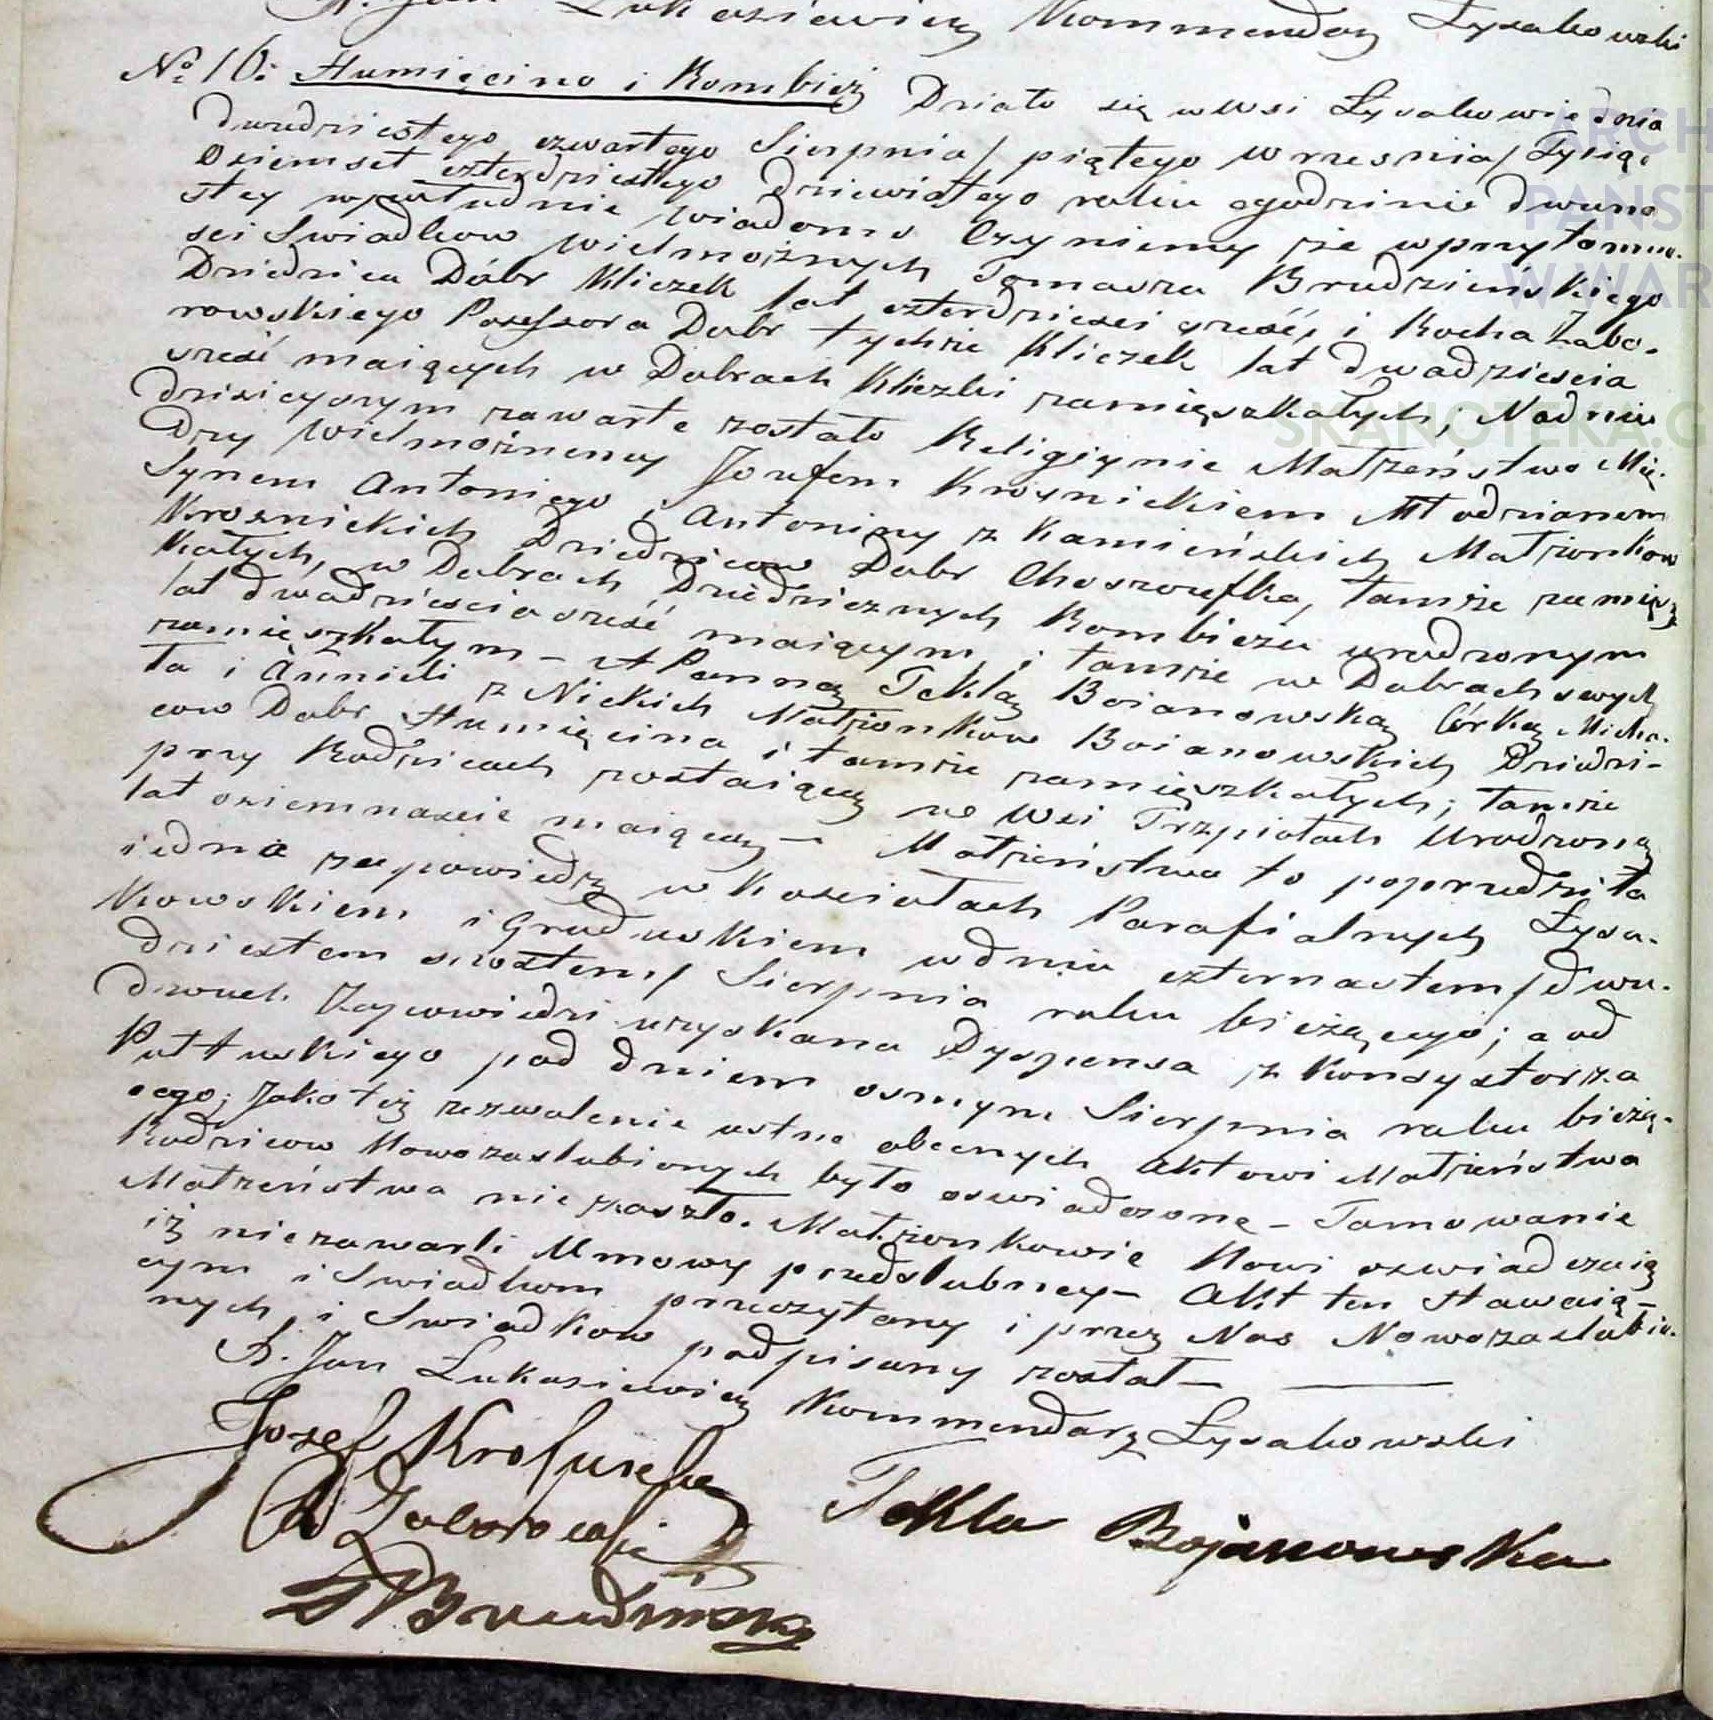 X. Jan Łukasiewicz Kommendarz Łysakowski
No. 16: Humięcino i Kombież Działo się w Wsi Łysakowie dnia
dwudziestego czwartego Sierpnia / piątego Wrzesnia / Tysiąc
Osiemset czterdziestego dziewiątego roku o godzinie dwuna
stey w południe Wiadomo Czyniemy że w przytomno-
sci Swiadkow Wielmożnych Tomasza Brudzińskiego
Dziedzica Dóbr Kliczek lat czterdziesci szesć, i Rocha Zabo-
rowskiego Possessora Dobr tychże Kliczek lat dwadziescia
szesć maiących w Dobrach Kliczki zamięszkałych; Na dniu
dzisieyszym zawarte zostało Religiynie Małżeństwo Mię-
dzy Wielmożnemy Jozefem Krosnickiem Młodzianem
Synem Antoniego i Antoniny z Kamieńskich Małżonkow
Krosnickich Dziedzicow Dobr Choszczefka, tamże zamięsz
kałych, w Dobrach Dziedzicznych Kombieżu urodzonym
lat dwadziescia szesć maiącym i tamże w Dobrach swych
zamięszkałym – A Panną Teklą Boianowską Córką Micha-
ła i Annieli z Nickich Małżonkow Boianowskich Dziedzi-
cow Dobr Humięcina i tamże zamięszkałych; tamże
przy Rodzicach zostaiącą we Wsi Trzpiołach Urodzoną
lat osiemnascie maiącą – Małżeństwo to poprzedziła
iedna zapowiedz w Kosciołach Parafialnych Łysa-
kowskiem i Gruduskiem w dniu czternastem / dwu-
dziestem szostem / Sierpnia roku bieżącego; a od
dwuch Zapowiedzi uzyskana Dyspensa z Konsystorza
Pułtuskiego pod dniem osmym Sierpnia roku bieżą-
cego; Jako też zezwolenie ustne obecnych Aktowi Małżeństwa
Rodzicow Nowozaslubionych było oswiadczone – Tamowanie
Małżeństwa nie zaszło. Małżonkowie Nowi oswiadczaią
iż niezawarli Umowy przedslubney – Akt ten stawaią-
cym i Swiadkom przeczytany i przez Nas Nowozaslubio-
nych i Swiadkow podpisany został –
X. Jan Łukasiewicz Kommendarz Łysakowski
Jozef Krosnicki
Tekla Bojanowska
R Zaborowski
T Brudzinski
ARCH
PAŃST
W WAR
SKANOTEKA.G